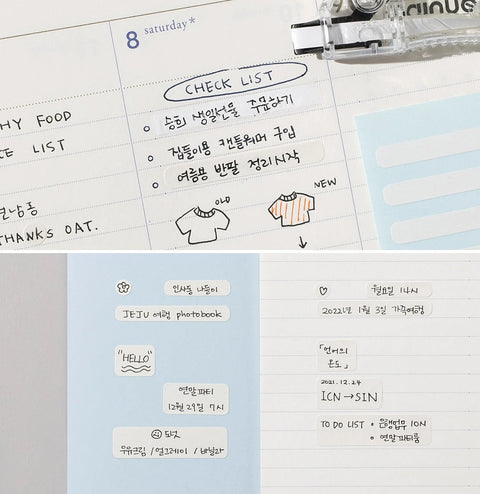 8 saturday*
CHECK LIST
승희 생일선물 주문하기
집들이용 캔들워머 구입
여름용 반팔 정리시작
HY FOOD
CE LIST
THANKS OAT.
OLD
NEW
인사동 나들이
JEJU 여행 photobook
"HELLO"
연말파티
12월 29일 7시
도넛
우유크림 / 얼그레이 / 바닐라
월요일 14시
2022년 1월 3일 가족여행
「언어의
온도」
2021.12.24
ICN → SIN
TO DO LIST • 은행업무 10N
• 연말파티룸